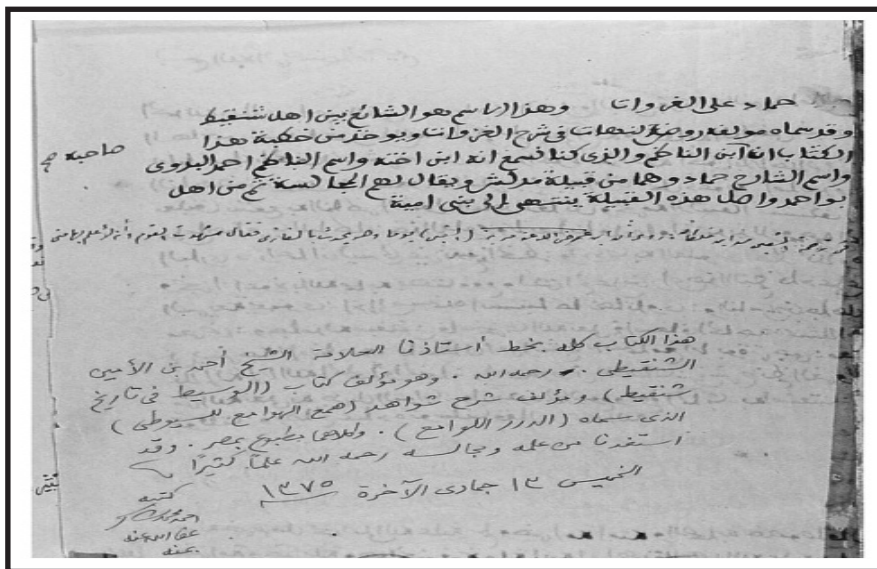 حماد على الغزوات وهذا الاسم هو الشائع بين اهل شنقيط
وقد سماه مولفه روضة النهات في شرح الغزوات ويوخذ من خطبة هذا
الكتاب انه ابن الناظم والذى كنا نسمع انه ابن اخته واسم الناظم احمد البدوى
صاحبه صح
واسم الشارح حماد وهما من قبيلة مدلش ويقال لهم المجالسة ثم من اهل
بواحمد واصل هذه القبيلة ينتهى إلى بنى امية
هذا الكتاب كله بخط أستاذنا العلامة الشيخ أحمد بن الأمين
الشنقيطى . رحمه الله . وهو مؤلف كتاب (الوسيط فى تاريخ
شنقيط) ومؤلف شرح شواهد (همع الهوامع للسيوطى)
الذى سماه (الدرر اللوامع) . وكلاهما مطبوع بمصر . وقد
استفدنا من علمه ومجالسه رحمه الله علمًا كثيرًا
الخميس ١٣ جمادى الآخرة ١٣٧٥
كتبه
احمد محمد شاكر
عفا الله عنه
بمنه